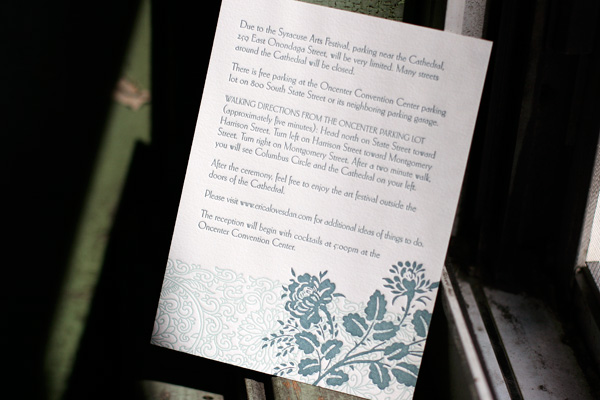 Due to the Syracuse Arts Festival, parking near the Cathedral,
259 East Onondaga Street, will be very limited. Many streets
around the Cathedral will be closed.
There is free parking at the Oncenter Convention Center parking
lot on 800 South State Street or its neighboring parking garage.
WALKING DIRECTIONS FROM THE ONCENTER PARKING LOT
(approximately five minutes): Head north on State Street toward
Harrison Street. Turn left on Harrison Street toward Montgomery
Street. Turn right on Montgomery Street. After a two minute walk,
you will see Columbus Circle and the Cathedral on your left.
After the ceremony, feel free to enjoy the art festival outside the
doors of the Cathedral.
Please visit www.ericalovesdan.com for additional ideas of things to do.
The reception will begin with cocktails at 5:00pm at the
Oncenter Convention Center.